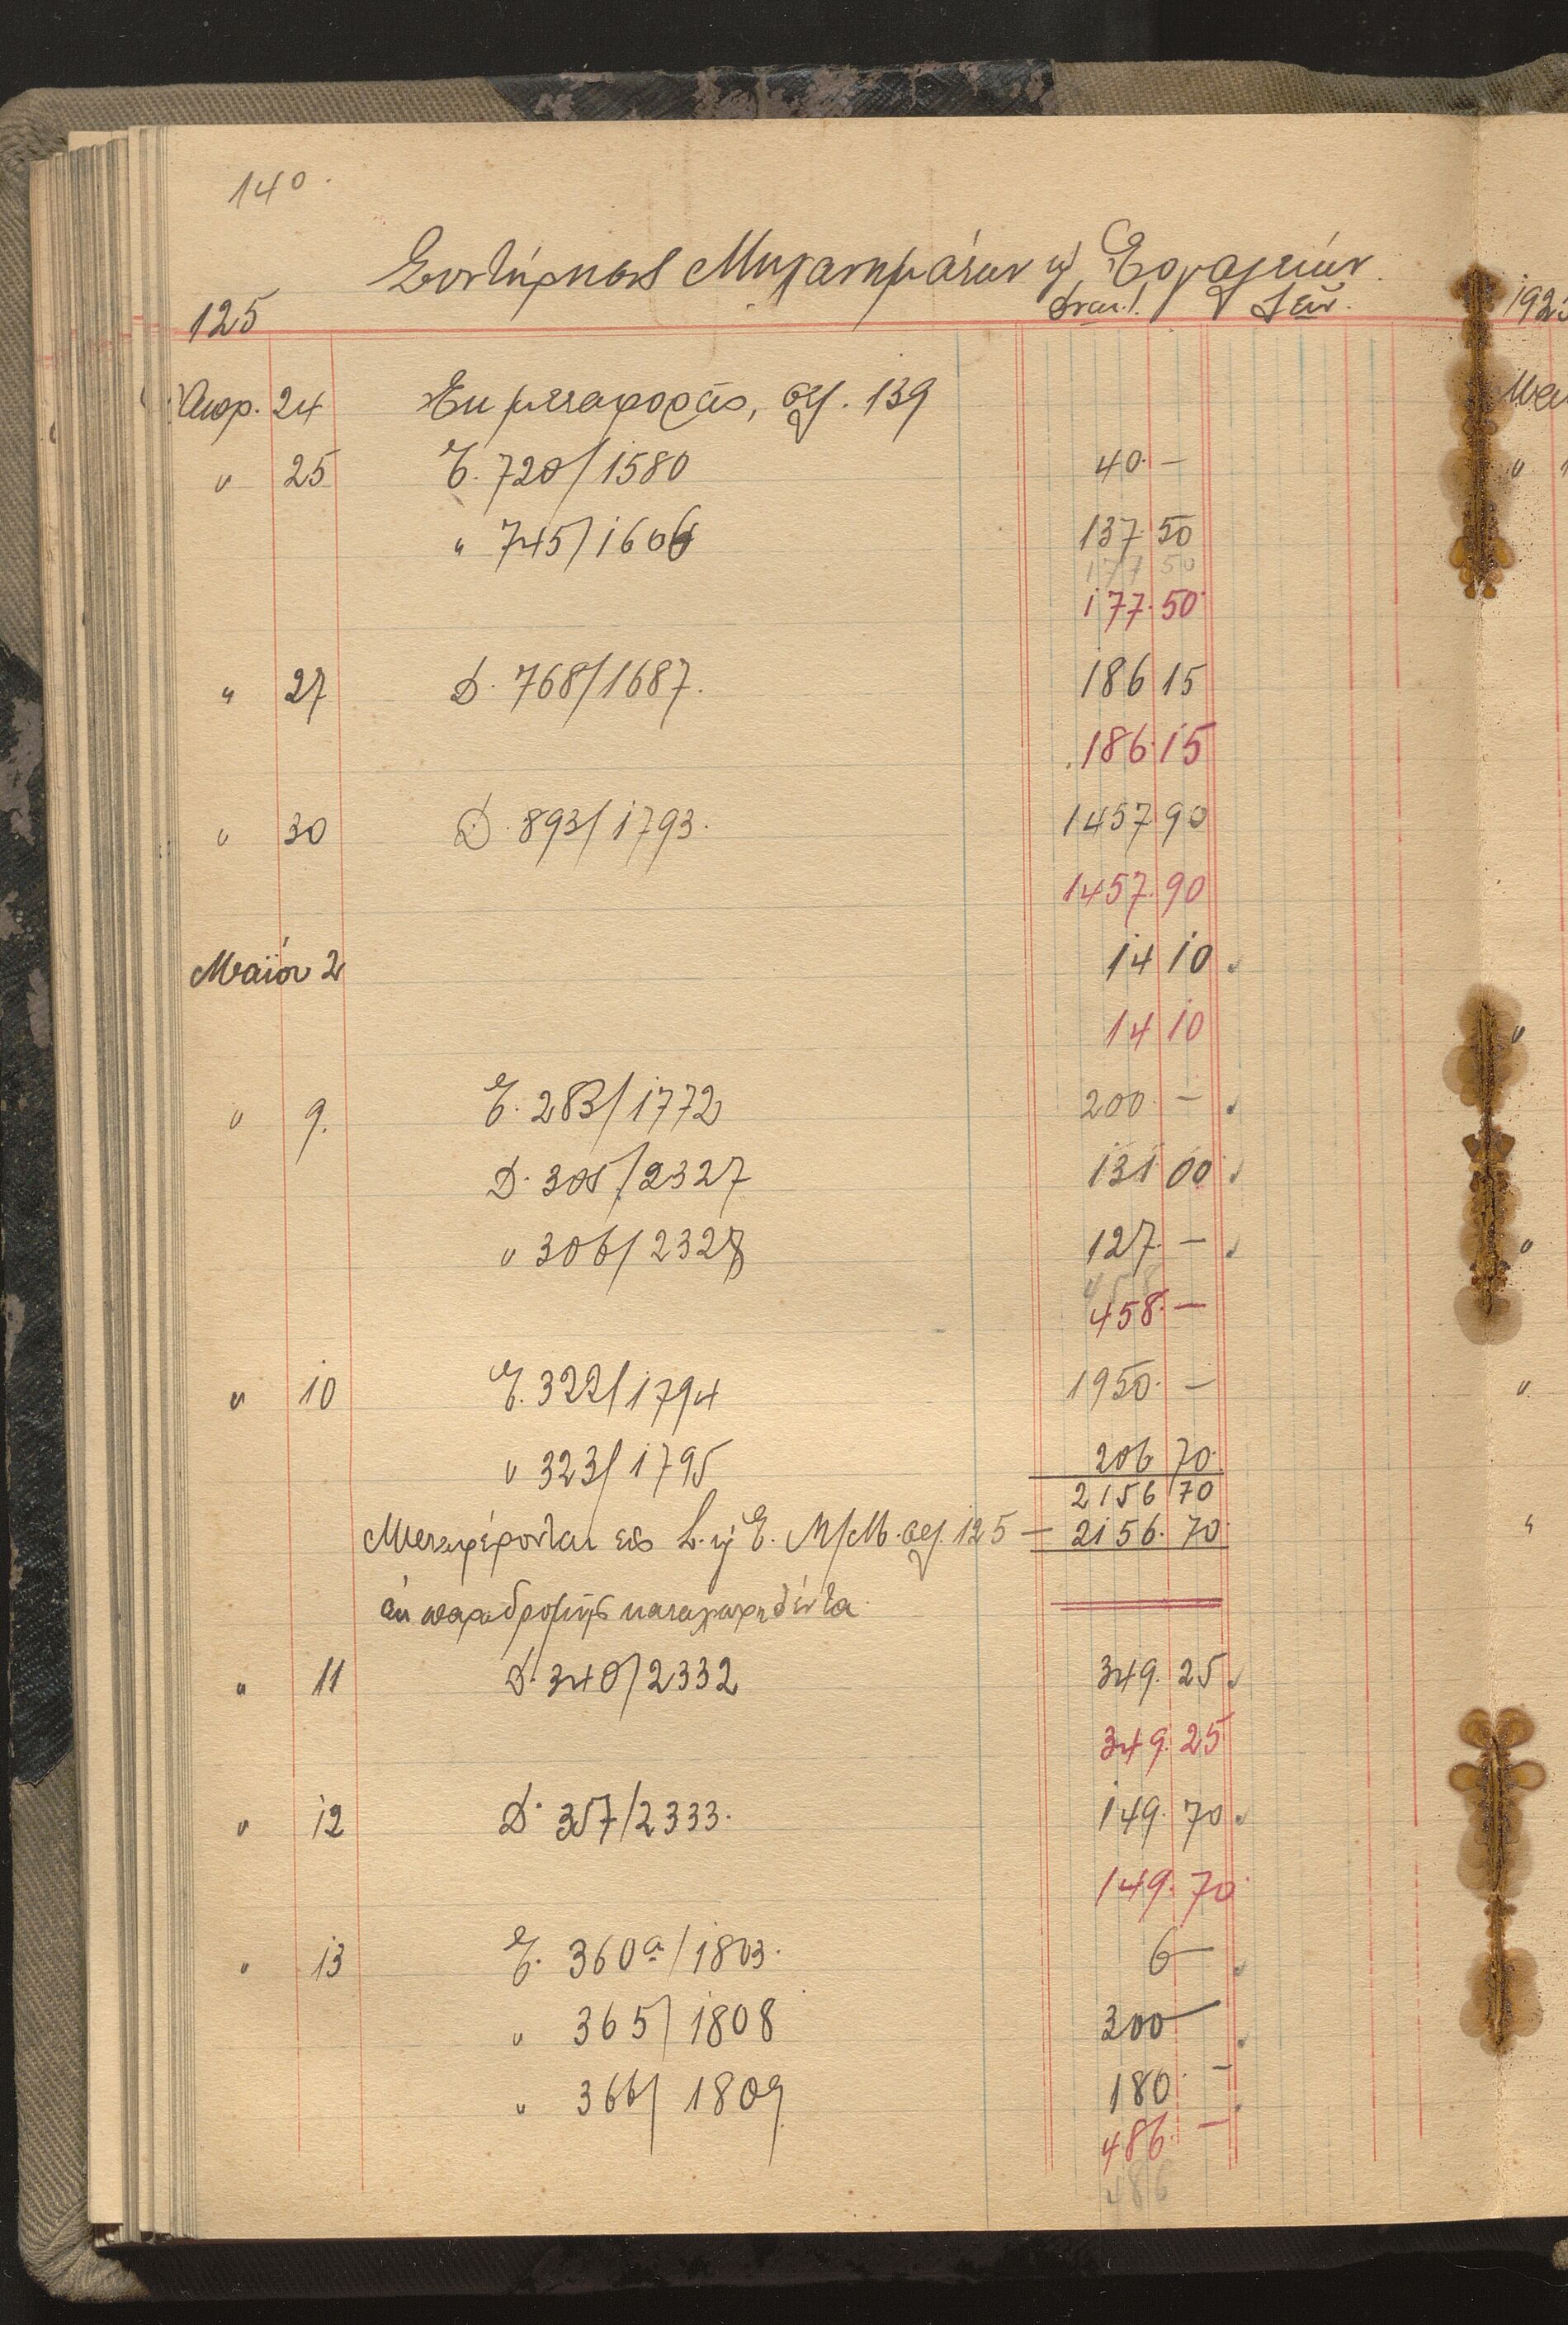 140.
Συντήρησις Μηχανημάτων κ' Εργαλείων
125 Δραχ. Λεπ.
Απρ. 24 Εκ μεταφοράς, σελ. 139
" 25 Ε. 720/1580 40.—
" 745/1606 137.50
177 50
177.50
" 27 D. 768/1687. 186 15
186.15
" 30 D. 893/1793. 1457 90
1457.90
Μαΐου 2 14 10
14 10
" 9. Ε. 283/1772 200.—
D. 305/2327 131 00
" 306/2328 127.—
458
458.—
" 10 Ε. 322/1794 1950.—
" 323/1795 206 70
2156 70
Μεταφέρονται εις Σ. κ' Ε. Μ/Μ. σελ. 125 — 2156.70
εκ παραδρομής καταχωρηθέντα
" 11 D. 340/2332 349.25
349.25
" 12 D. 357/2333. 149.70
149.70
" 13 Ε. 360α/1803. 6—
" 365/1808 300—
" 366/1809 180.—
486.—
486
1925
"
"
"
"
"